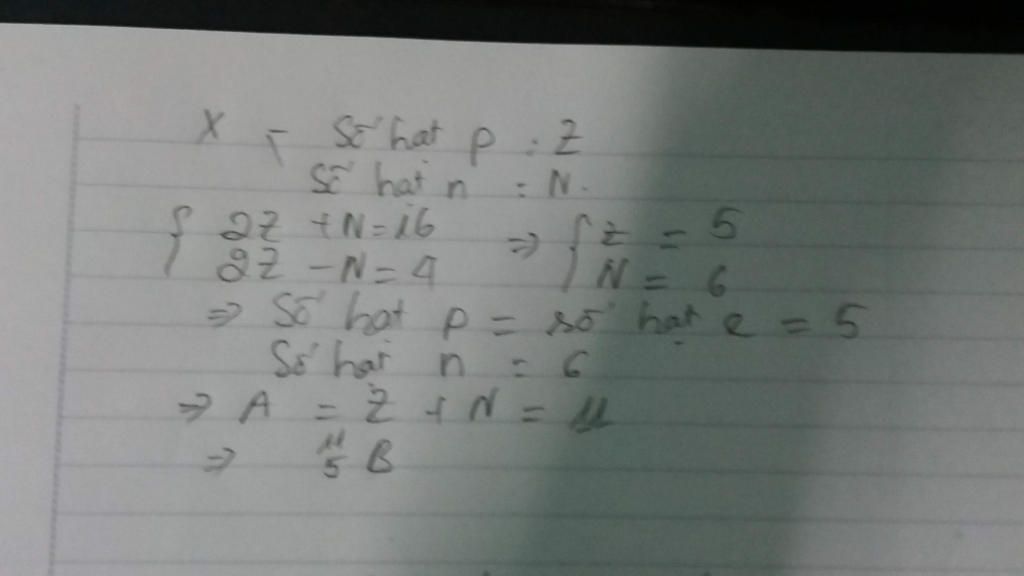 X { Số hạt p : Z
Số hạt n : N.
{ 2Z + N = 16 => { Z = 5
2Z - N = 4 N = 6
=> Số hạt p = số hạt e = 5
Số hạt n = 6
=> A = Z + N = 11
=> ¹¹₅B